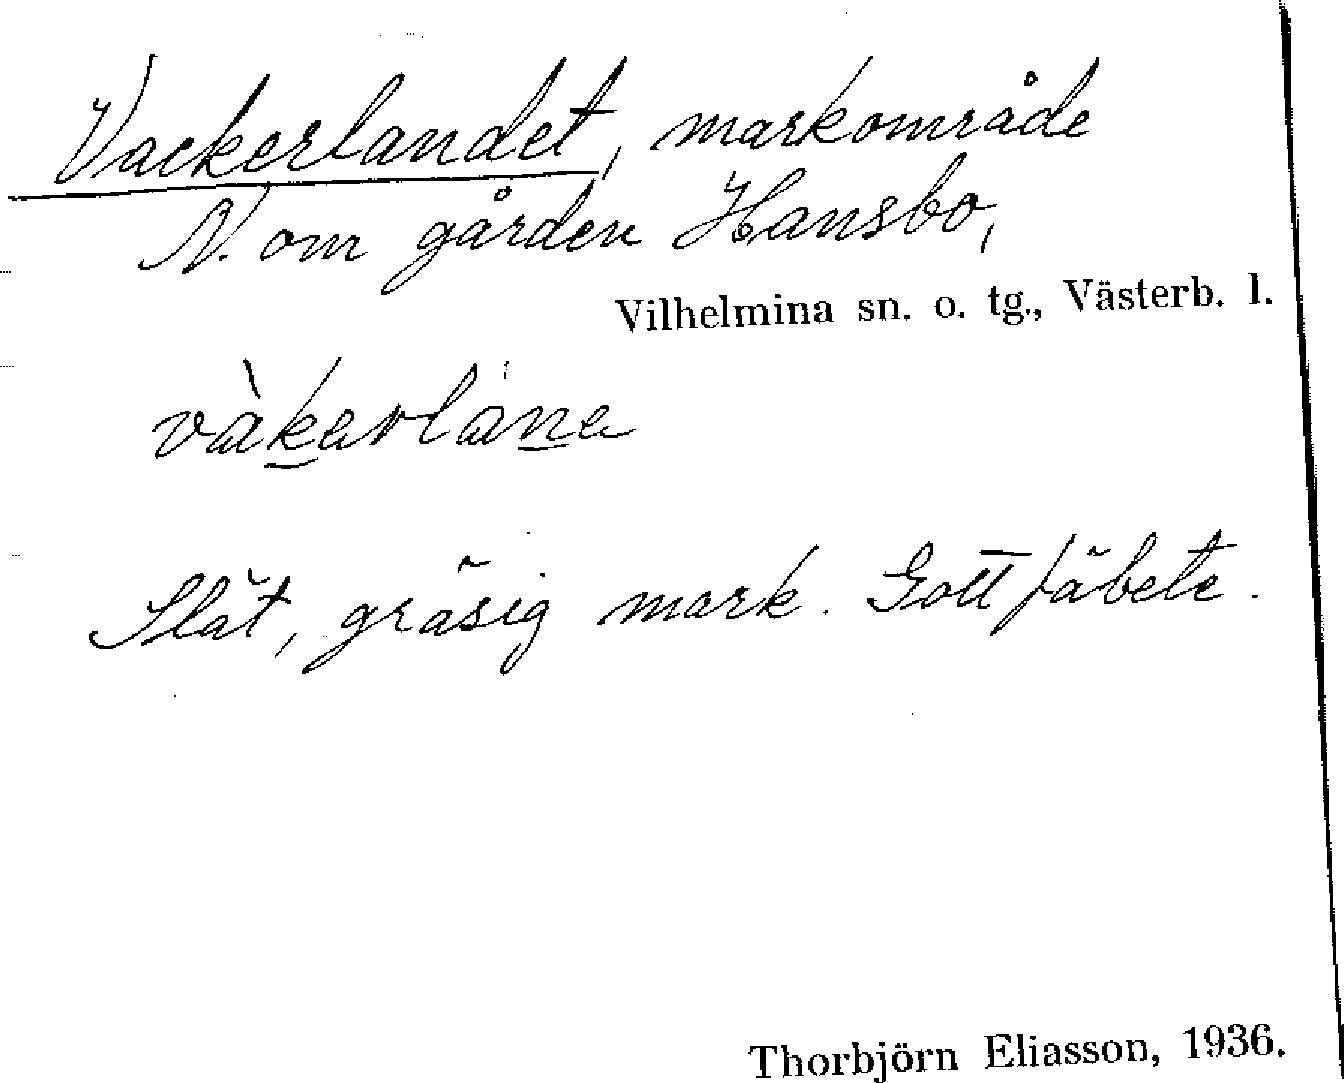 Vackerlandet, markområde
N. om gården Hansbo,
Vilhelmina sn. o. tg., Västerb. l.
vàkerlane
Slät, gräsig mark. Gott fäbete.
Thorbjörn Eliasson, 1936.